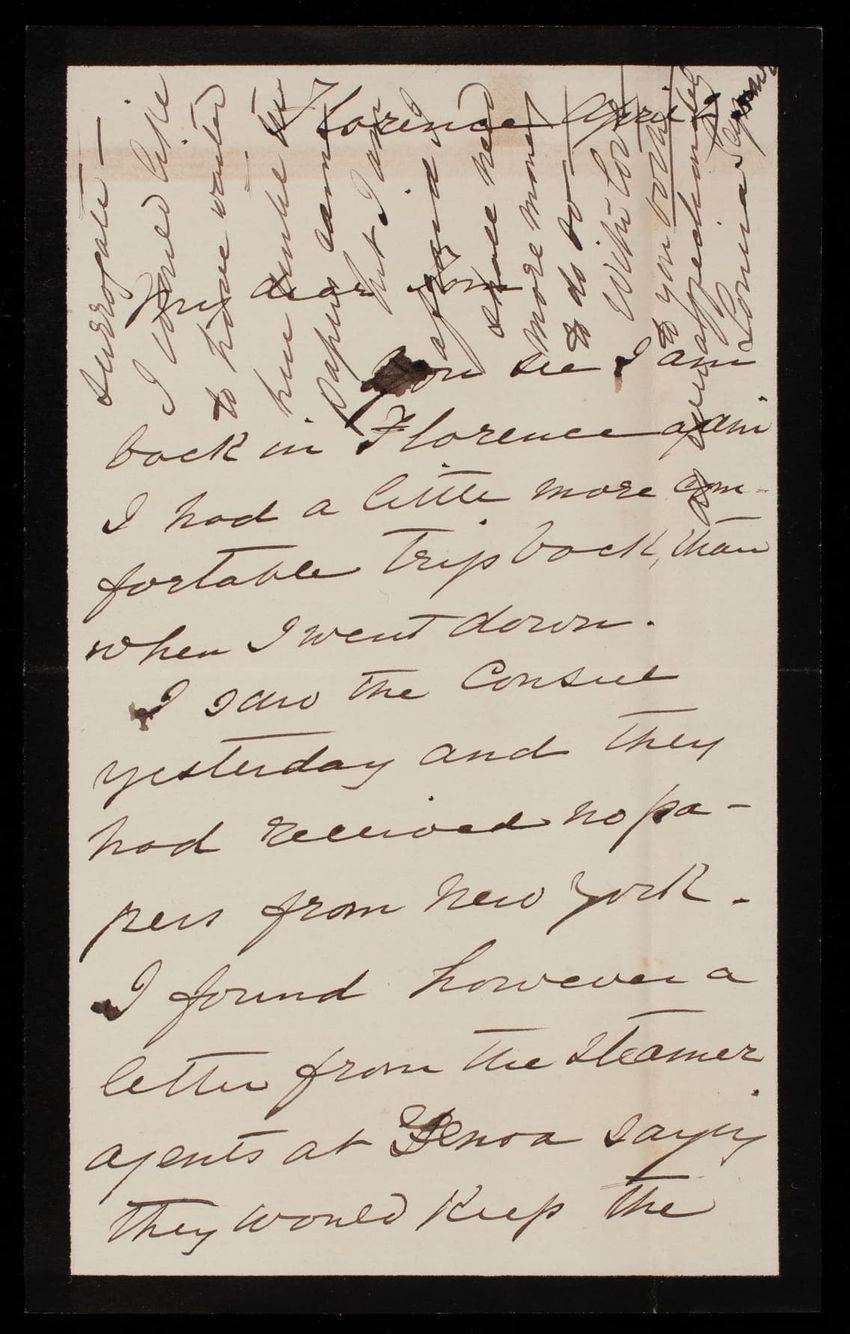 Florence April
My dear Tom
You see I am
back in Florence again
I had a little more com-
fortable trip back, than
when I went down.
I saw the Consul
yesterday and they
had received no pa-
pers from New York.
I found however a
letter from the steamer
agents at Genoa saying
they would keep the
surrogate —
I would like
to have waited
here until the
papers came
but I am
afraid I
shall need
more money
to do so
With love
to you both
affectionately
Louisa